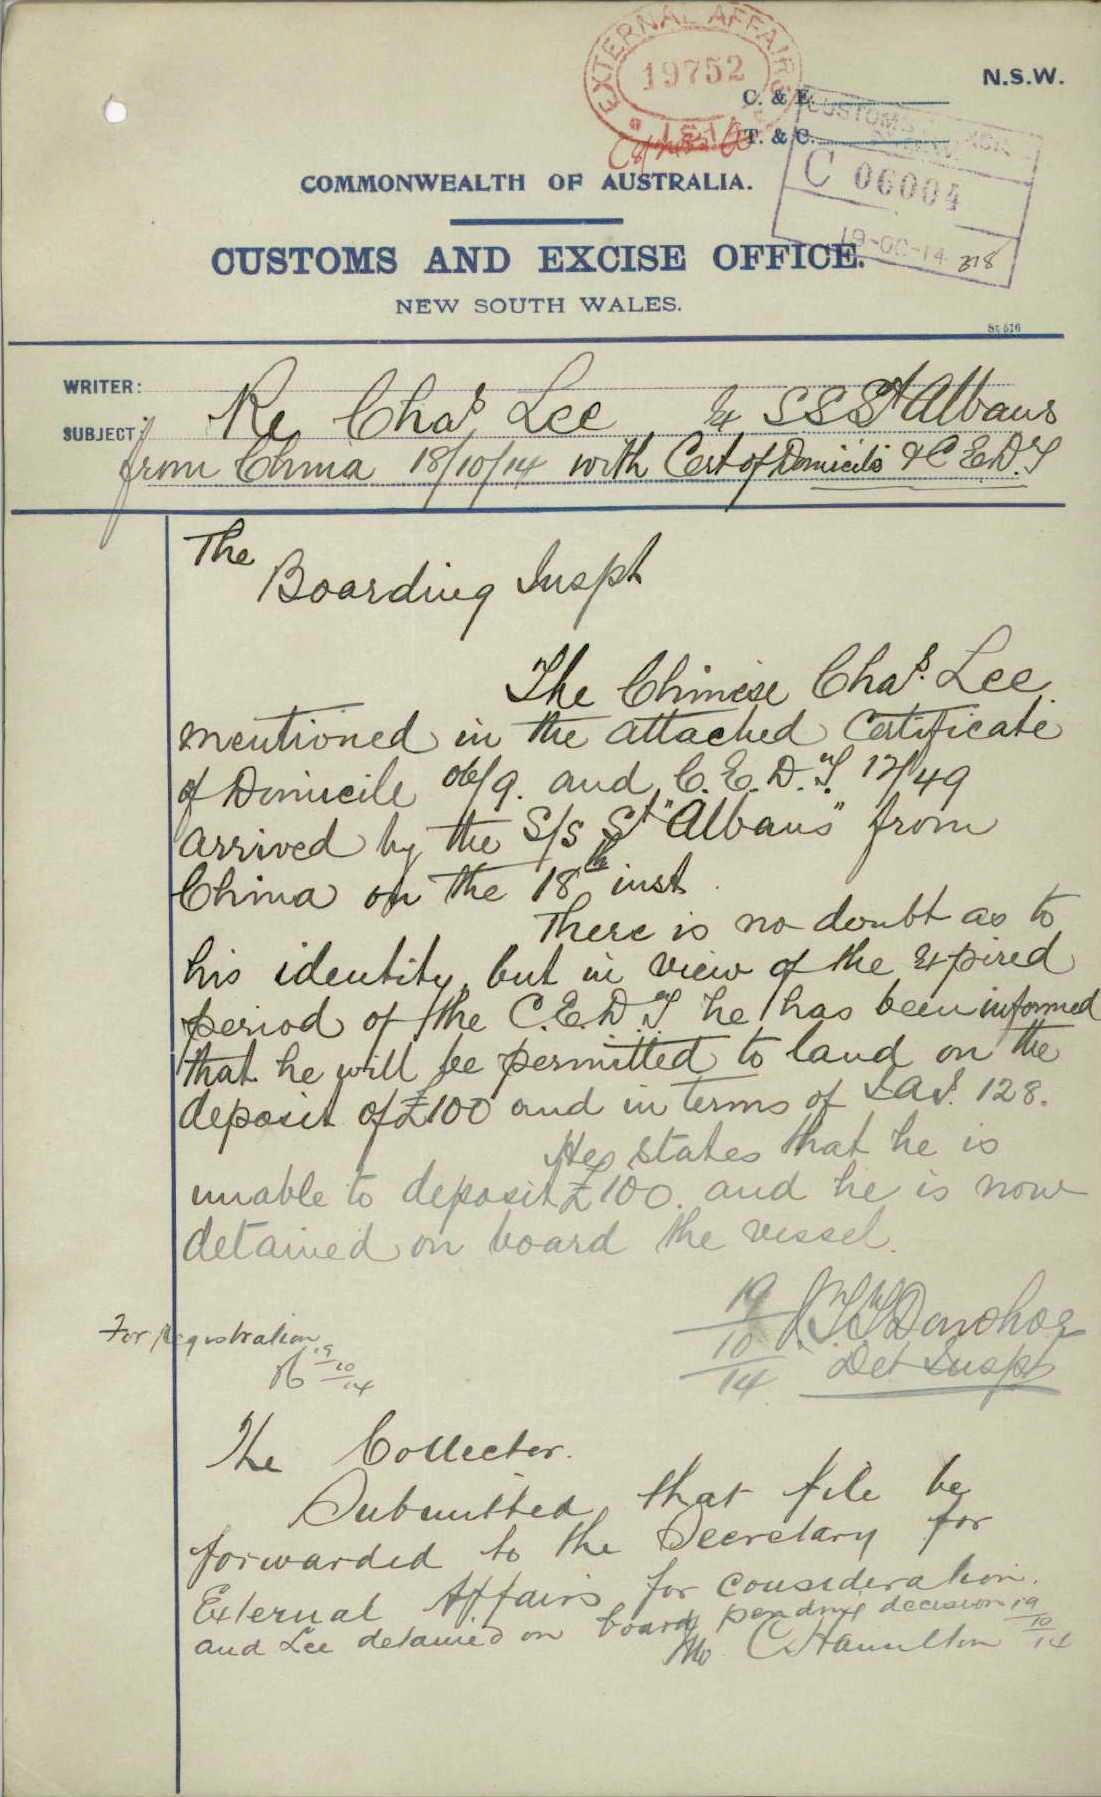 EXTERNAL AFFAIRS
19752
N.S.W.
C. & E.
T. & C.
CUSTOMS
C 06004
19-OC-14
318
COMMONWEALTH OF AUSTRALIA.
CUSTOMS AND EXCISE OFFICE.
NEW SOUTH WALES.
WRITER:
SUBJECT:
Re Chas Lee Ex S S St Albans
from China 18/10/14 with Cert of Domicile & C E D. T
The
Boarding Inspt
The Chinese Chas. Lee
mentioned in the attached Certificate
of Domicile 06/9. and C. E. D. T. 12/49
arrived by the S/S St "Albans" from
China on the 18th inst.
There is no doubt as to
his identity, but in view of the expired
period of the C. E. D. T he has been informed
that he will be permitted to land on the
deposit of £100 and in terms of 128.
He states that he is
unable to deposit £100. and he is now
detained on board the vessel.
19/10/14 Donohoe
Det Inspt
For Registration
19/10/14
The Collector.
Submitted that file be
forwarded to the Secretary for
External Affairs for consideration.
and Lee detained on board pending decision 19/10/14
C Hamilton